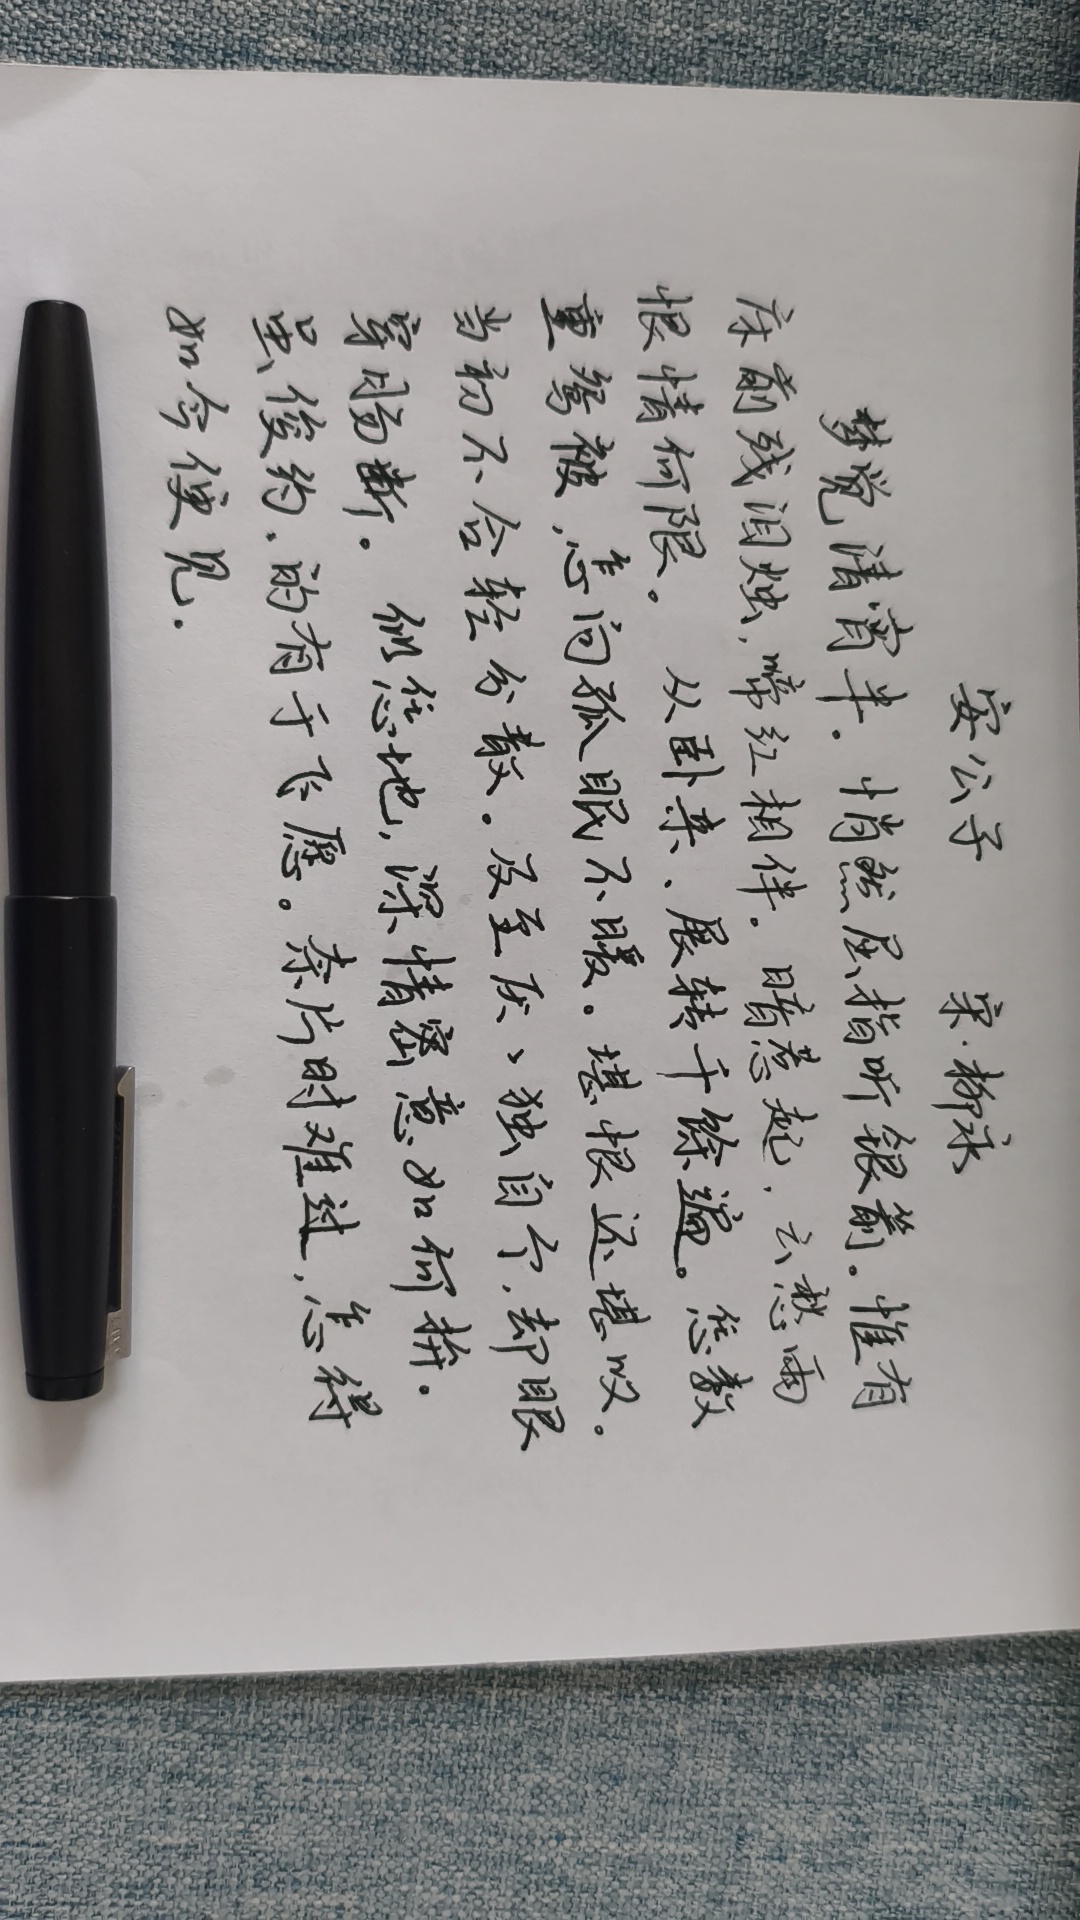 安公子 宋·柳永
梦觉清宵半。悄然屈指听银箭。惟有
床前残泪烛，啼红相伴。暗惹起，云愁雨
恨情何限。从卧来、展转千馀遍。恁数
重鸳被，怎向孤眠不暖。堪恨还堪叹。
当初不合轻分散。及至厌、独自个，却眼
穿肠断。似恁地，深情密意如何拚。
虽後约，的有于飞愿。奈片时难过，怎得
如今便见。